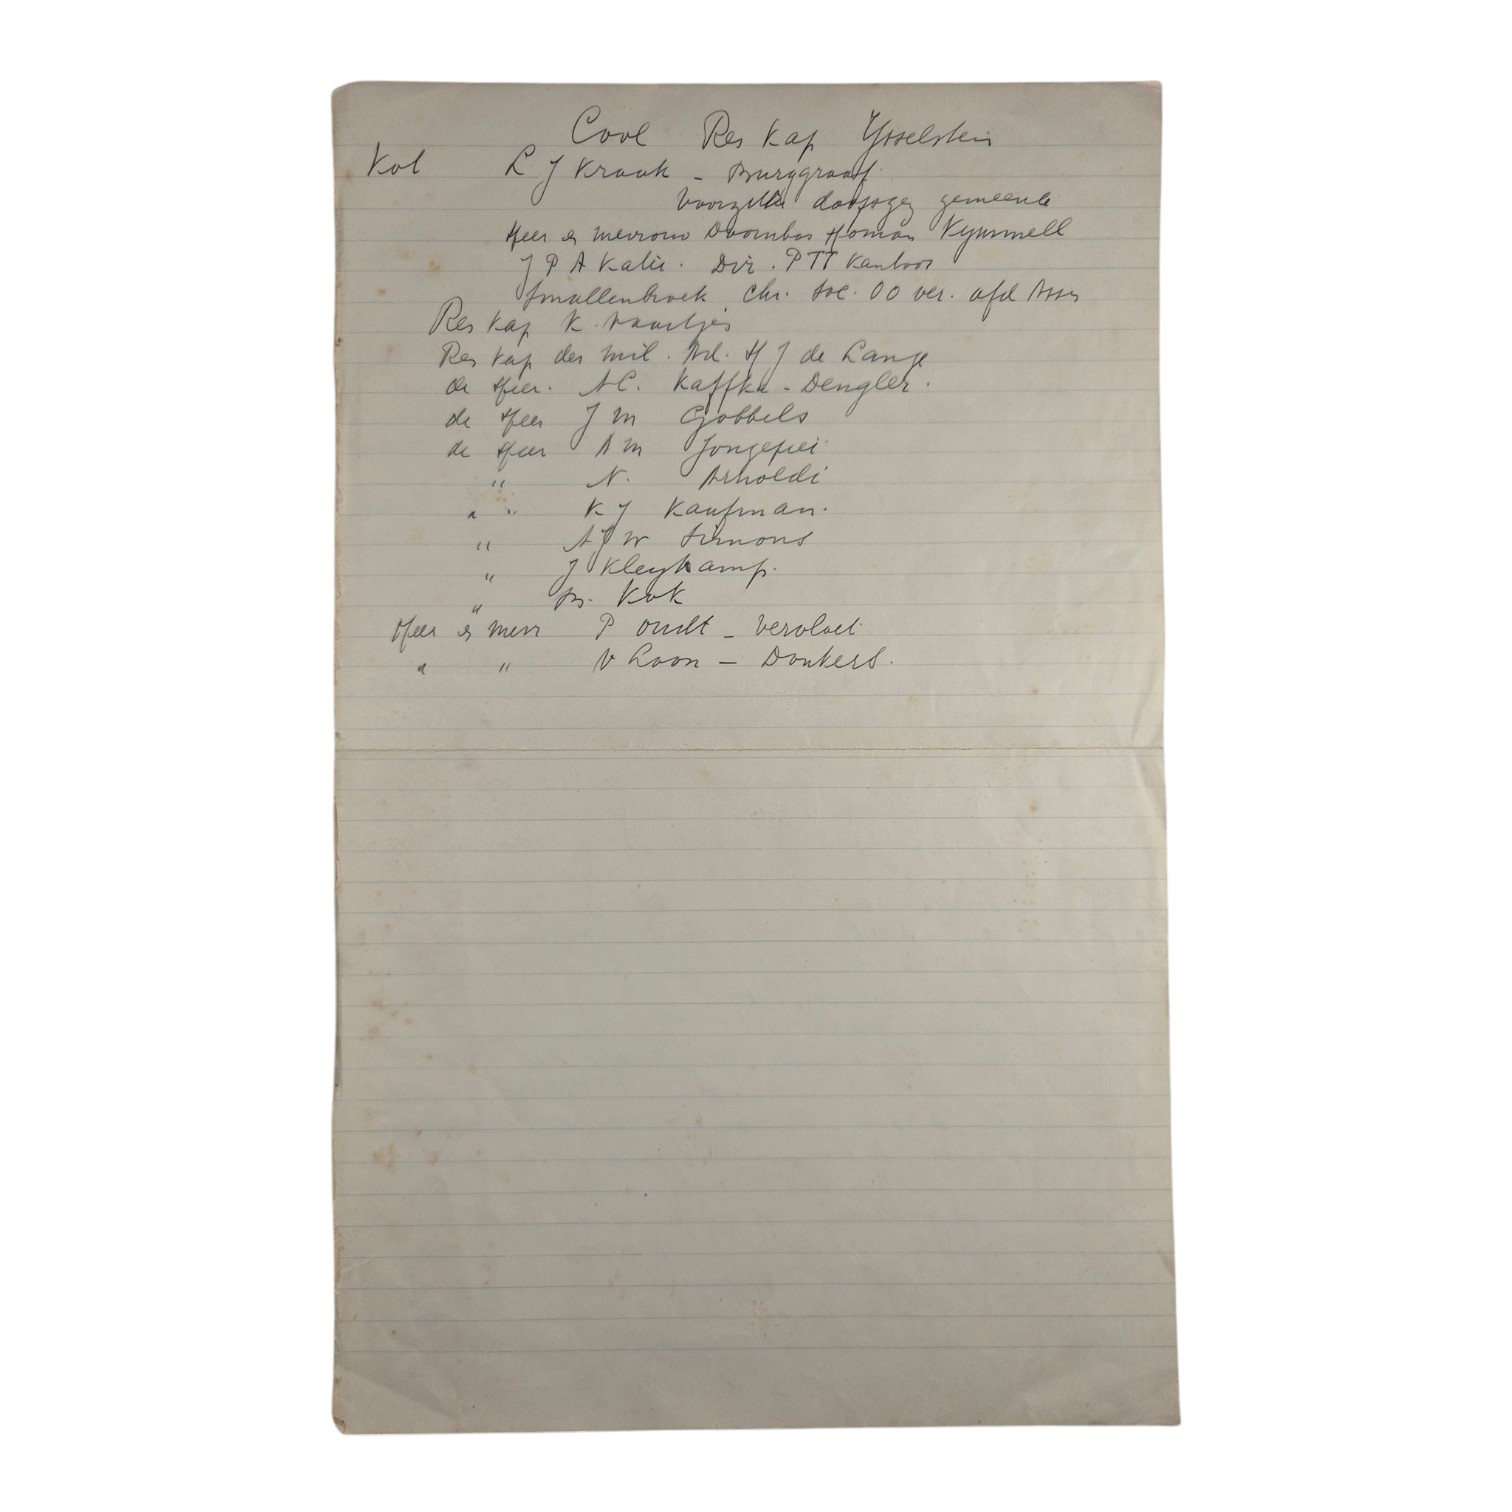 Cool Res Kap Ysselstein
Kol L J Kraak - Burggraaf
Voorzitter doopsgez gemeente
Heer en mevrouw Doornbos Homan Kymmell
J P A Kalis. Dir. PTT Kantoor
Smallenbroek Chr. Soc. OO ver. afd Assen
Res Kap K. Vaartjes
Res Kap der mil. Ad. H J de Lange
de Heer. A C. Kaffka - Dengler.
de Heer J M Gobbels
de Heer A M Jongepier
" N. Arnoldi
" " K J Kaufman.
" A J W Simons
" J Kleykamp.
" Kok
Heer en Mevr P Oudt - Vervloet
" " V Loon - Donkers.